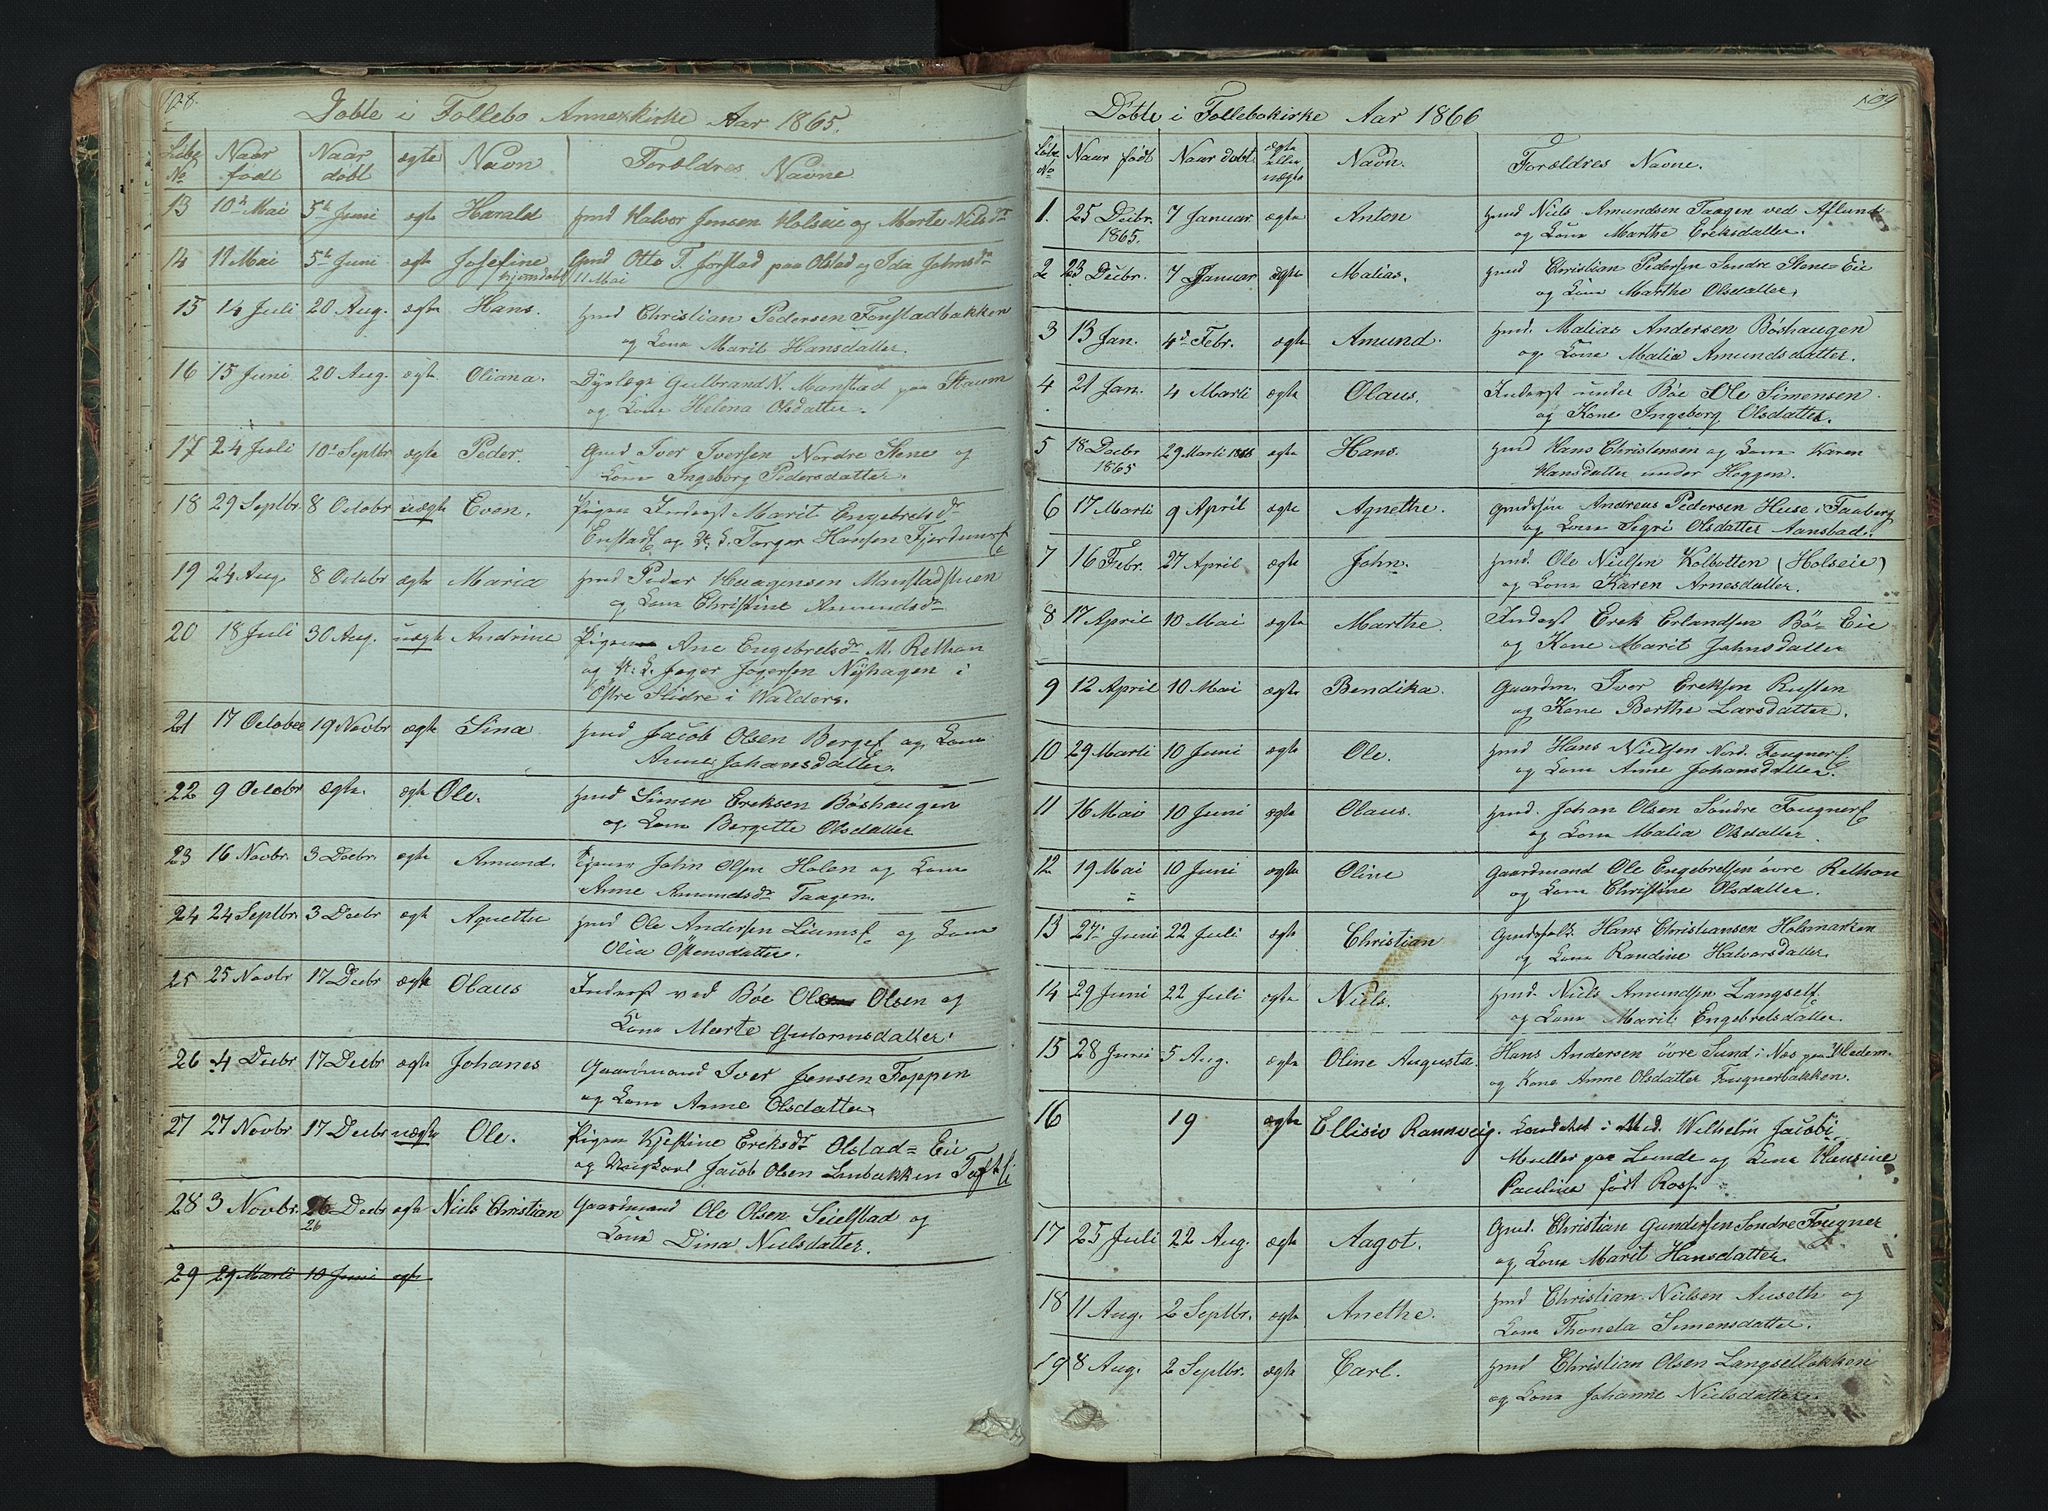 108.
Døbte i Follebo Annexkirke Aar 1865.
Løbe No Naar født Naar døbt ægte Navn Forældres Navne
13 10de Mai 5te Juni ægte Harald Hmd Halvor Jensen Holseie og Marte Nilsdr
14 11 Mai 5te Juni ægte Josefine Gmd Otto T. Jørstad paa Olstad og Ida Johnsdr
hjemdøbt 11 Mai
15 14 Juli 20 Aug. ægte Hans. Hmd Christian Pedersen Fonstadbakken
og Kone Marit Hansdatter.
16 15 Juni 20 Aug. ægte Oliana. Dyrlæge Gulbrand N. Manstad paa
og Kone Helena Olsdatter.
17 24 Juli 10de Septbr ægte Peder. Gmd Iver Iversen Nordre Stene og
Kone Ingeborg Pedersdatter.
18 29 Septbr. 8 Octobr uægte Even. Pigen Inderst Marit Engebretsdr
Enstad og U. K. Torger Hansen
19 24 Aug. 8 Octobr ægte Maria Hmd Peder Haagensen Manstadstuen
og Kone Christine Amundsdr
20 18 Juli 30 Aug. uægte Andrine Pigen Ane Engebretsdr M. Rethon
og Joger Jogersen Nyhagen i
Østre Slidre i Walders.
21 17 October 19 Novbr ægte Sina Hmd Jacob Olsen Berge og Kone
Anne Johansdatter.
22 9 Octobr ægte. ægte Ole. Hmd Simen Ereksen Bøshaugen
og Kone Bergitte Olsdatter
23 16 Novbr. 3 Decbr. ægte Amund. Eiener John Olsen Holen og Kone
Anne Amundsdr Taagen.
24 24 Septbr. 3 Decbr ægte Agnethe Hmd Ole Andersen og Kone
Olia
25 25 Novbr 17 Decbr ægte Olaus Inderst ved Bøe Ole Olsen og
Kone Marte Guttormsdatter.
26 4 Decbr 17 Decbr ægte Johanes Gaardmand Iver Jensen Foppen
og Kone Anne Olsdatter
27 27 Novbr 17 Decbr uægte Ole. Pigen Kjestine Ereksdr Olstad=Eie
og Ungkarl Jacob Olsen
28 3 Novbr. 26 Decbr ægte Niels Christian Gaardmand Ole Olsen Seielstad og
26
Kone Dina Nielsdatter.
29 29 Marti 10 Juni ægte
109
Døbte i Follebokirke Aar 1866
Løbe No Naar født Naar døbt ægte eller uægte Navn. Forældres Navne.
1. 25 Decbr. 7 Januar ægte Anton Hmd Niels Amundsen Taagen ved Aflund
1865. og Kone Marthe Ereksdatter.
2 23 Decbr. 7 Januar ægte Matias. Hmd Christian Pedersen Søndre Stene=Eie
og Kone Marthe Olsdatter,
3 13 Jan. 4de Febr. ægte Amund. Hmd. Matias Andersen Bøshaugen
og Kone Malia Amundsdatter.
4 21 Jan. 4 Marti ægte Olaus. Inderst under Bøe Ole Simensen
og Kone Ingeborg Olsdatter.
5 18 Decbr 29 Marti 1866 ægte Hans. Hmd Hans Christensen og Kone Karen
1865 Hansdatter under Hoggen.
6 17 Marti 9 April ægte Agnethe. Andreas Pedersen Huse i Faaberg
og Kone Sigri Olsdatter Aanstad.
7 16 Febr. 27 April ægte John. Hmd. Ole Nielsen Kolbotten (Holseie)
og Kone Karen Arnesdatter.
8 17 April 10 Mai ægte Marthe. Inderst Erek Erlandsen Bö=Eie
og Kone Marit Johnsdatter
9 12 April 10 Mai ægte Bendika. Gaardm. Iver Ereksen Rusten
og Kone Berthe Larsdatter.
10 29 Marti 10 Juni ægte Ole. Hmd Hans Nielsen Nord. Fougner
og Kone Anne Johansdatter.
11 16 Mai 10 Juni ægte Olaus. Hmd. Johan Olsen Søndre Fougner
og Kone Malia Olsdatter.
12 19 Mai 10 Juni ægte Oline Gaardmand Ole Engebretsen øvre Rethon
og Kone Christine Olsdatter.
13 24. Juni 22 Juli ægte Christian Gmdsfolk Hans Christiansen Holsmarken
og Kone Randine Halvorsdatter.
14 29 Juni 22 Juli ægte Niels. Hmd. Niels Amundsen Langset
og Kone Marit Engebretsdatter.
15 28 Juni 5 Aug. ægte Oline Augusta. Hans Andersen øvre Sund i Næs paa Hedem.
og Kone Anne Olsdatter Fougnerbakken.
16 19 ægte Ellisiv Rannveig. Kandidat i Med. Wilhelm Jacobi
Muller paa Lunde og Kone Hansine
Pauline født Ross.
17 25 Juli 22 Aug. ægte Aagot. Gmd. Christian Gundersen Søndre Fougner
og Kone Marit Hansdatter.
18 11 Aug. 2 Septbr. ægte Anethe. Hmd Christian Nielsen Auseth og
Kone Thonela Simensdatter.
19 8 Aug. 2 Septbr. ægte Carl. Hmd Christian Olsen Langsetbakken
og Kone Johanne Nielsdatter.